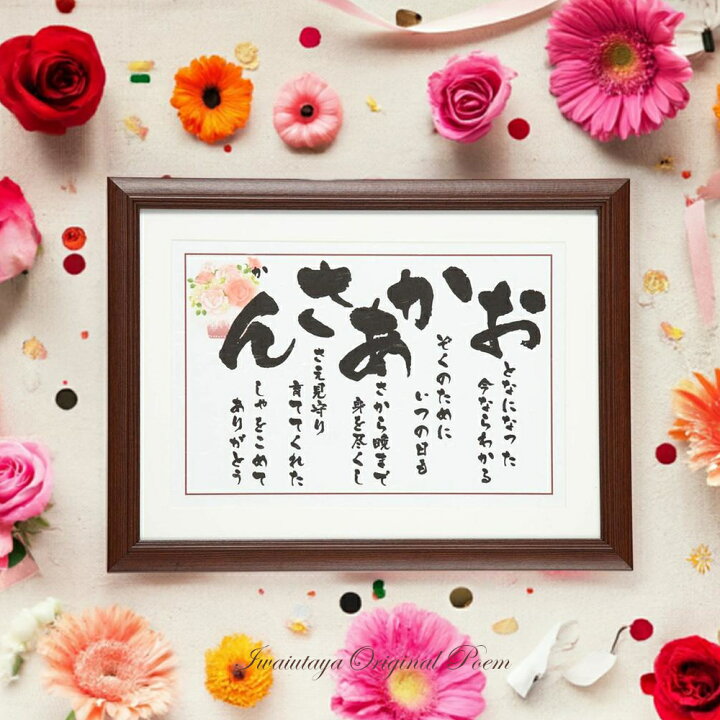 おとなになった
今ならわかる
かぞくのために
いつの日も
あさから晩まで
身を尽くし
ささえ見守り
育ててくれた
かんしゃをこめて
ありがとう
Iwaiutaya Original Poem